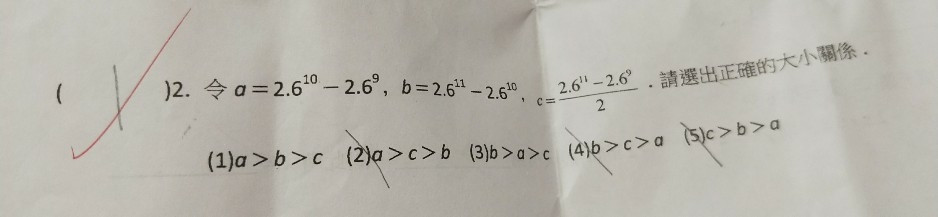 ( | )2. 令 a=2.6¹⁰－2.6⁹, b=2.6¹¹－2.6¹⁰, c=(2.6¹¹－2.6⁹)/2 . 請選出正確的大小關係.
(1)a>b>c (2)a>c>b (3)b>a>c (4)b>c>a (5)c>b>a